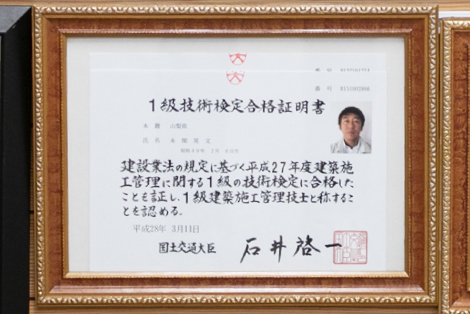 1級技術検定合格証明書
本籍 山梨県
氏名
建設業法の規定に基づく平成27年度建築施
工管理に関する1級の技術検定に合格した
ことを証し、1級建築施工管理技士と称するこ
とを認める。
平成28年 3月11日
国土交通大臣 石井啓一